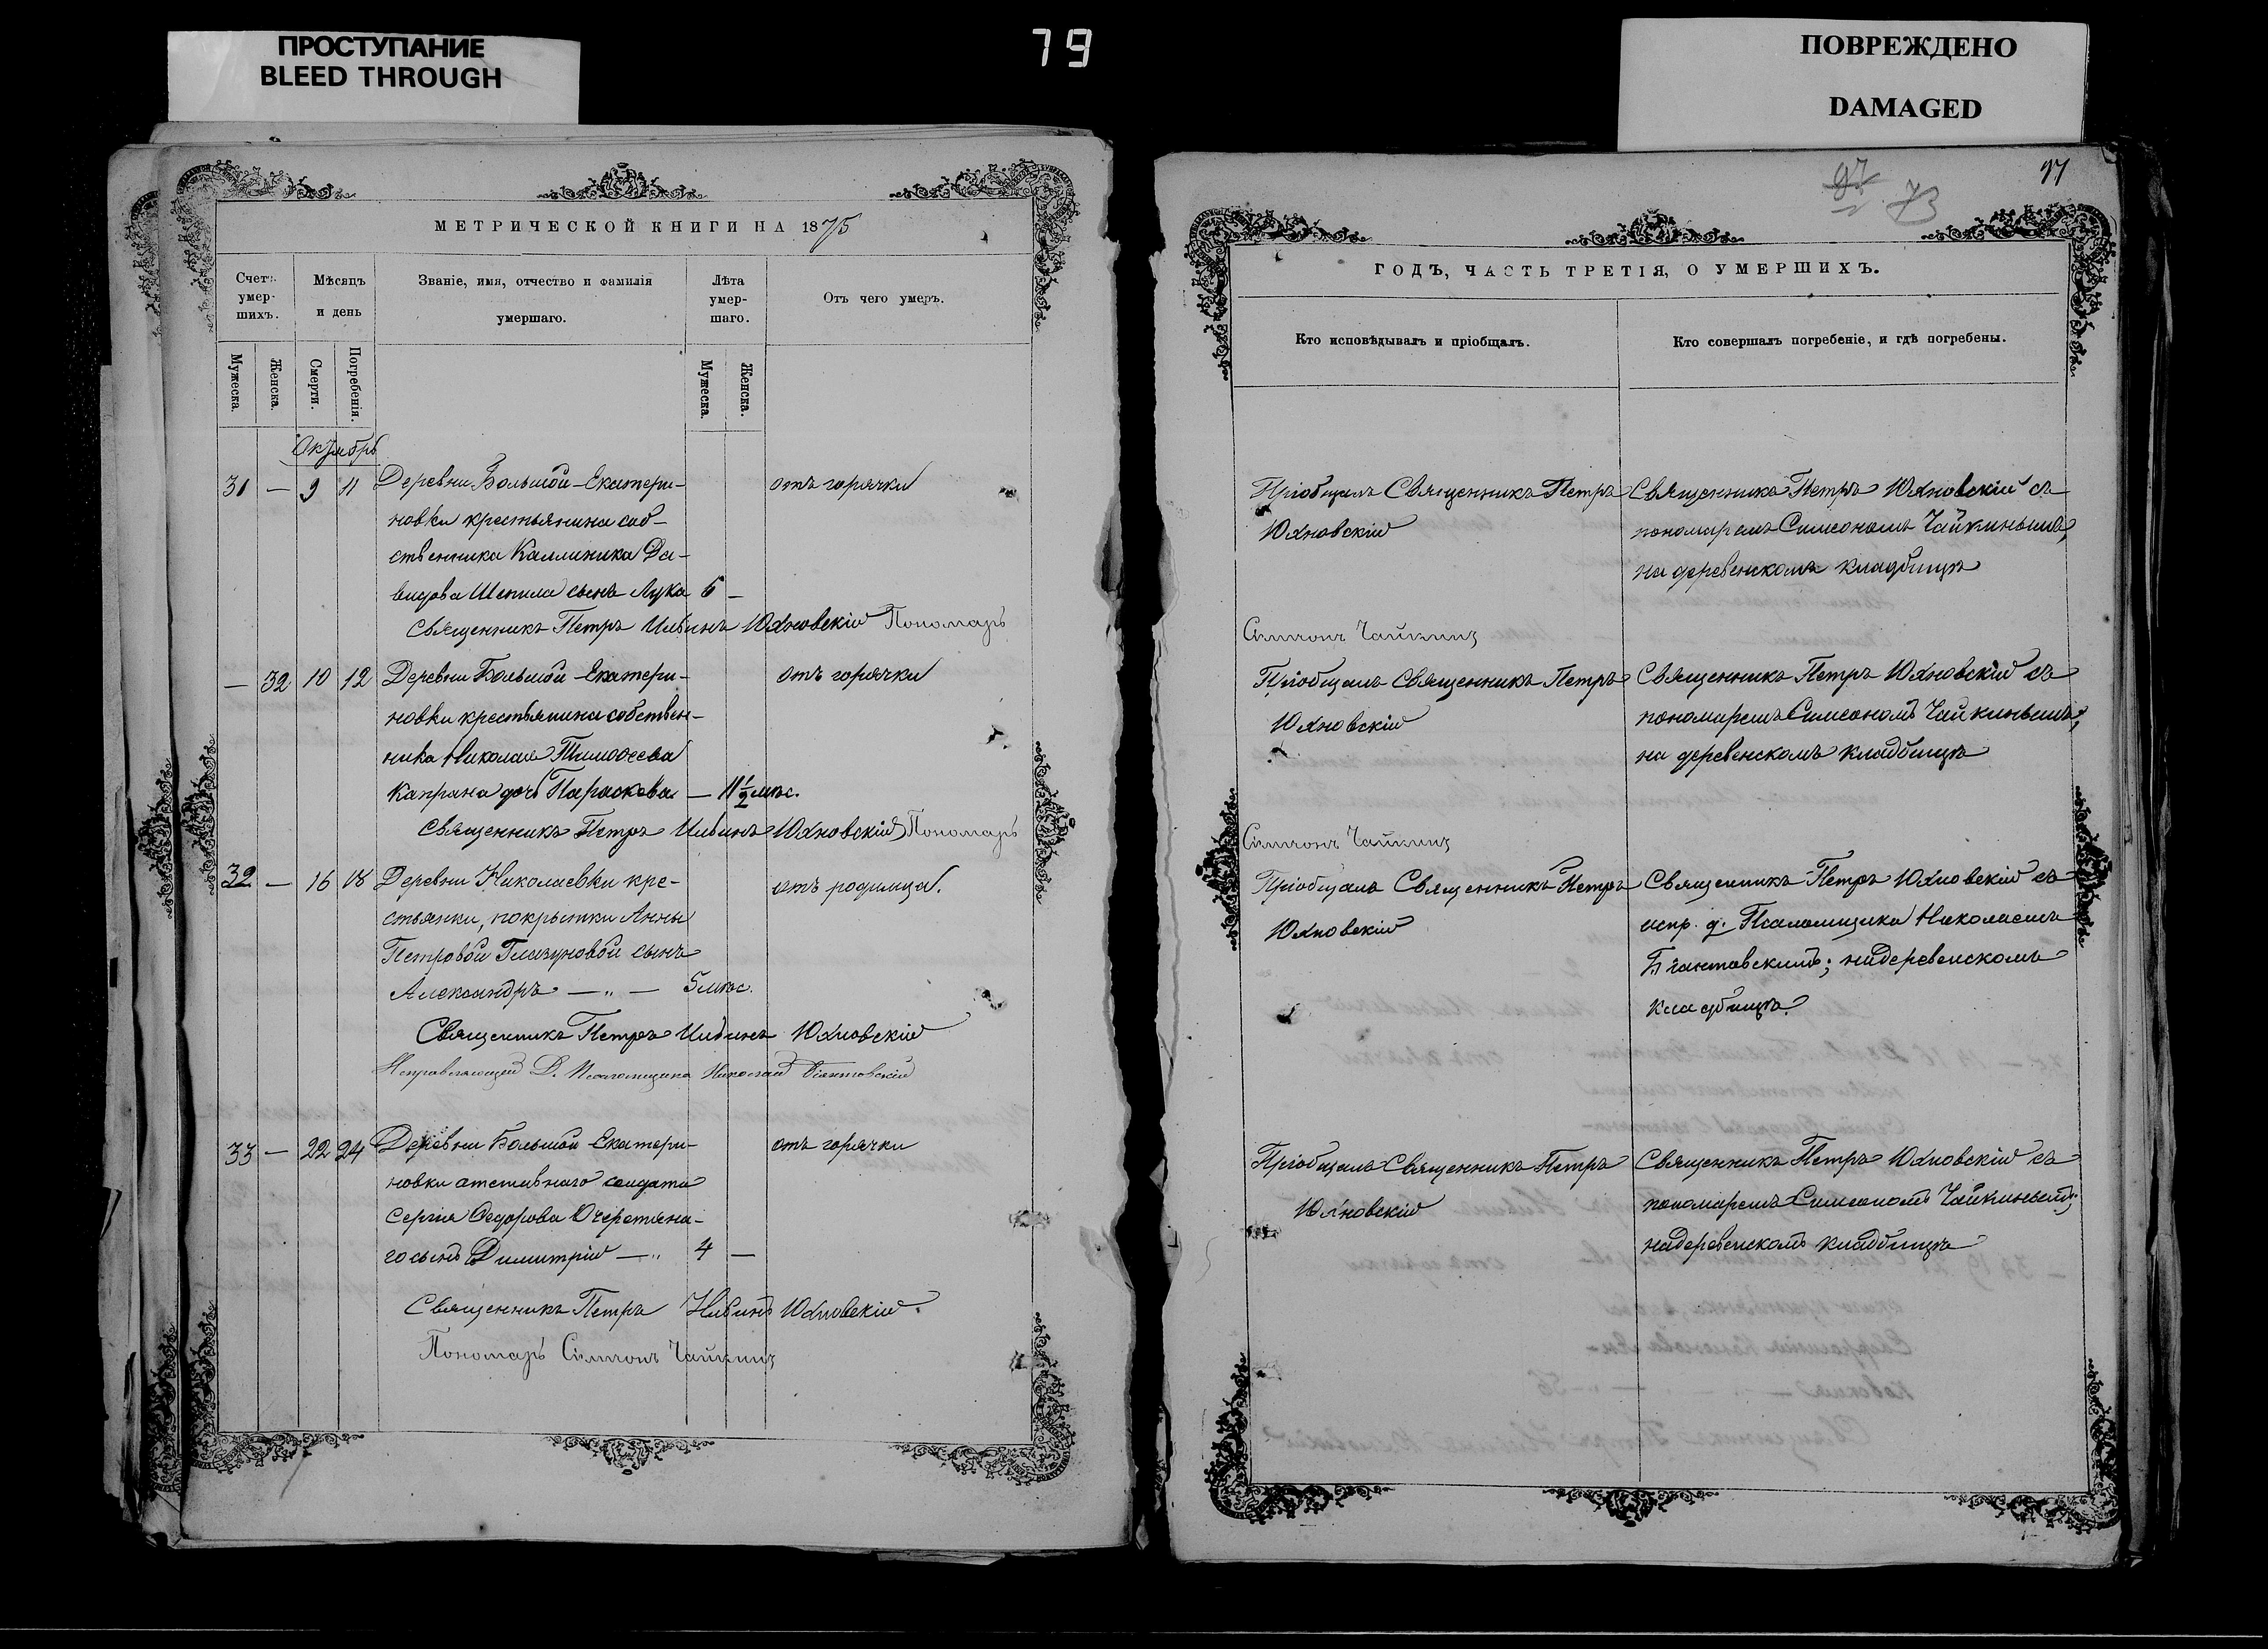 ПРОСТУПАНИЕ
BLEED THROUGH
79
ПОВРЕЖДЕНО
DAMAGED
МЕТРИЧЕСКОЙ КНИГИ НА 1875
Счетъ умер- шихъ.
Мѣсяцъ и день
Званіе, имя, отчество и фамилія умершаго.
Лѣта умер- шаго.
Отъ чего умеръ.
Мужеска.
Женска.
Смерти.
Погребенія.
Мужеска.
Женска.
Октябрь
31 — 9 11 Деревни Большой-Екатери- отъ горячки
новки крестьянина соб-
ственника Каллиника Да-
видова Шепила сынъ Лука 6 —
Священникъ Петръ Ильинъ Юхновскій Пономарь
— 32 10 12 Деревни Большой-Екатери- отъ горячки
новки крестьянина собствен-
ника Николая Тимоѳеева
Капрана дочь Параскева — 11 1/2 мѣс.
Священникъ Петръ Ильинъ Юхновскій Пономарь
32 — 16 18 Деревни Николаевки кре- отъ родимца.
стьянки, покрытки Анны
Петровой Глазуновой сынъ
Александръ — „ — 5 мѣс.
Священникъ Петръ Ильинъ Юхновскій
Исправляющій Д. Псаломщика Николай
33 — 22 24 Деревни Большой-Екатери- отъ горячки
новки отставнаго солдата
Сергія Ѳедорова Очеретяна-
го сынъ Димитрій — „ 4 —
Священникъ Петръ Ильинъ Юхновскій.
Пономарь Симеонъ Чайкинъ
97 73
97
ГОДЪ, ЧАСТЬ ТРЕТІЯ, О УМЕРШИХЪ.
Кто исповѣдывалъ и пріобщалъ.
Кто совершалъ погребеніе, и гдѣ погребены.
Пріобщалъ Священникъ Петръ
Юхновскій
Священникъ Петръ Юхновскій съ
пономаремъ Симеономъ Чайкинымъ,
на деревенскомъ кладбищѣ
Симеонъ Чайкинъ
Пріобщалъ Священникъ Петръ
Юхновскій
Священникъ Петръ Юхновскій съ
пономаремъ Симеономъ Чайкинымъ,
на деревенскомъ кладбищѣ
Симеонъ Чайкинъ
Пріобщалъ Священникъ Петръ
Юхновскій
Священникъ Петръ Юхновскій съ
испр. д. Псаломщика Николаемъ
на деревенскомъ
кладбищѣ.
Пріобщалъ Священникъ Петръ
Юхновскій
Священникъ Петръ Юхновскій съ
пономаремъ Симеономъ Чайкинымъ;
на деревенскомъ кладбищѣ